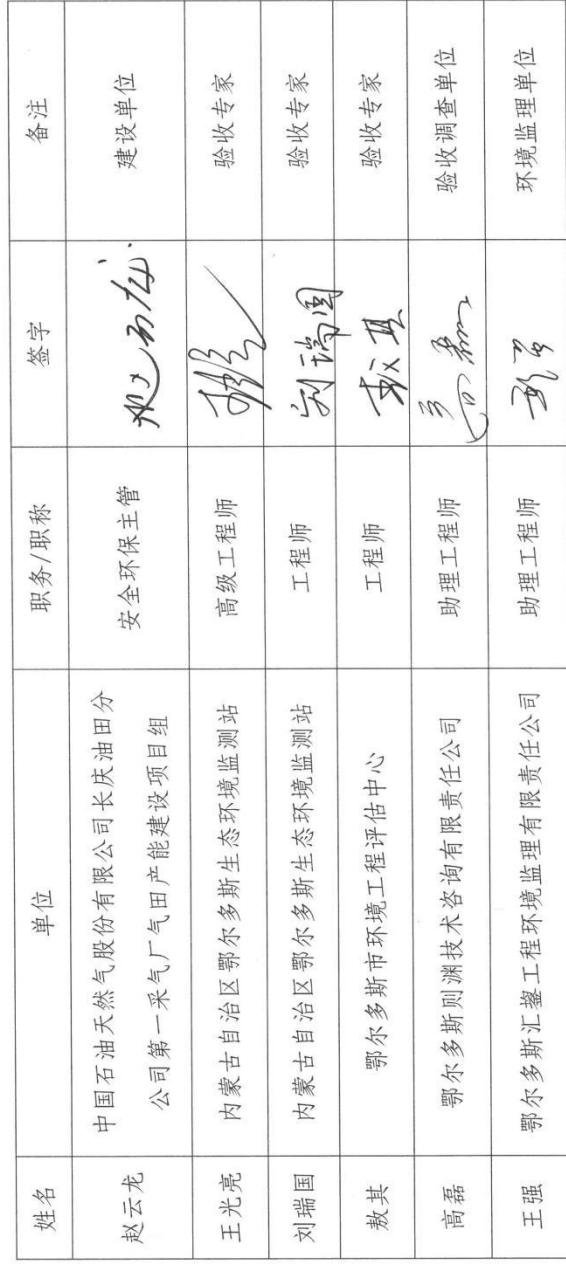 姓名 单位 职务/职称 签字 备注
赵云龙 中国石油天然气股份有限公司长庆油田分 安全环保主管 赵云龙 建设单位
公司第一采气厂气田产能建设项目组
王光亮 内蒙古自治区鄂尔多斯生态环境监测站 高级工程师 验收专家
刘瑞国 内蒙古自治区鄂尔多斯生态环境监测站 工程师 刘瑞国 验收专家
敖其 鄂尔多斯市环境工程评估中心 工程师 敖其 验收专家
高磊 鄂尔多斯则渊技术咨询有限责任公司 助理工程师 高磊 验收调查单位
王强 鄂尔多斯汇鋆工程环境监理有限责任公司 助理工程师 环境监理单位